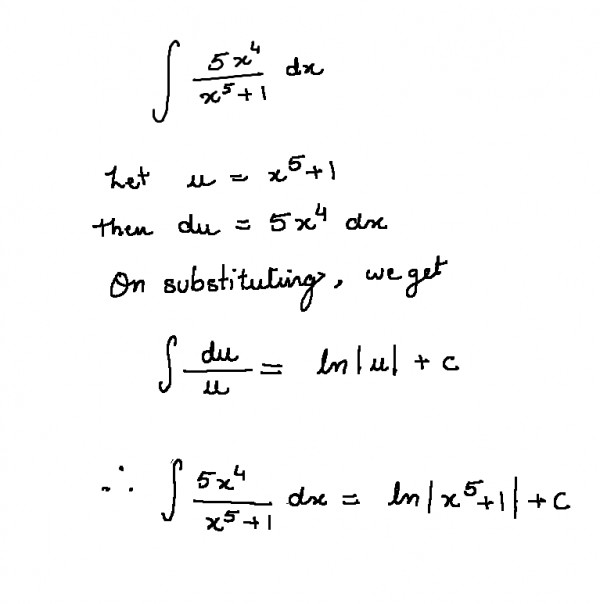 ∫ 5x⁴/(x⁵+1) dx
Let u = x⁵+1
then du = 5x⁴ dx
On substituting, we get
∫ du/u = ln|u| + c
∴ ∫ 5x⁴/(x⁵+1) dx = ln|x⁵+1| + c